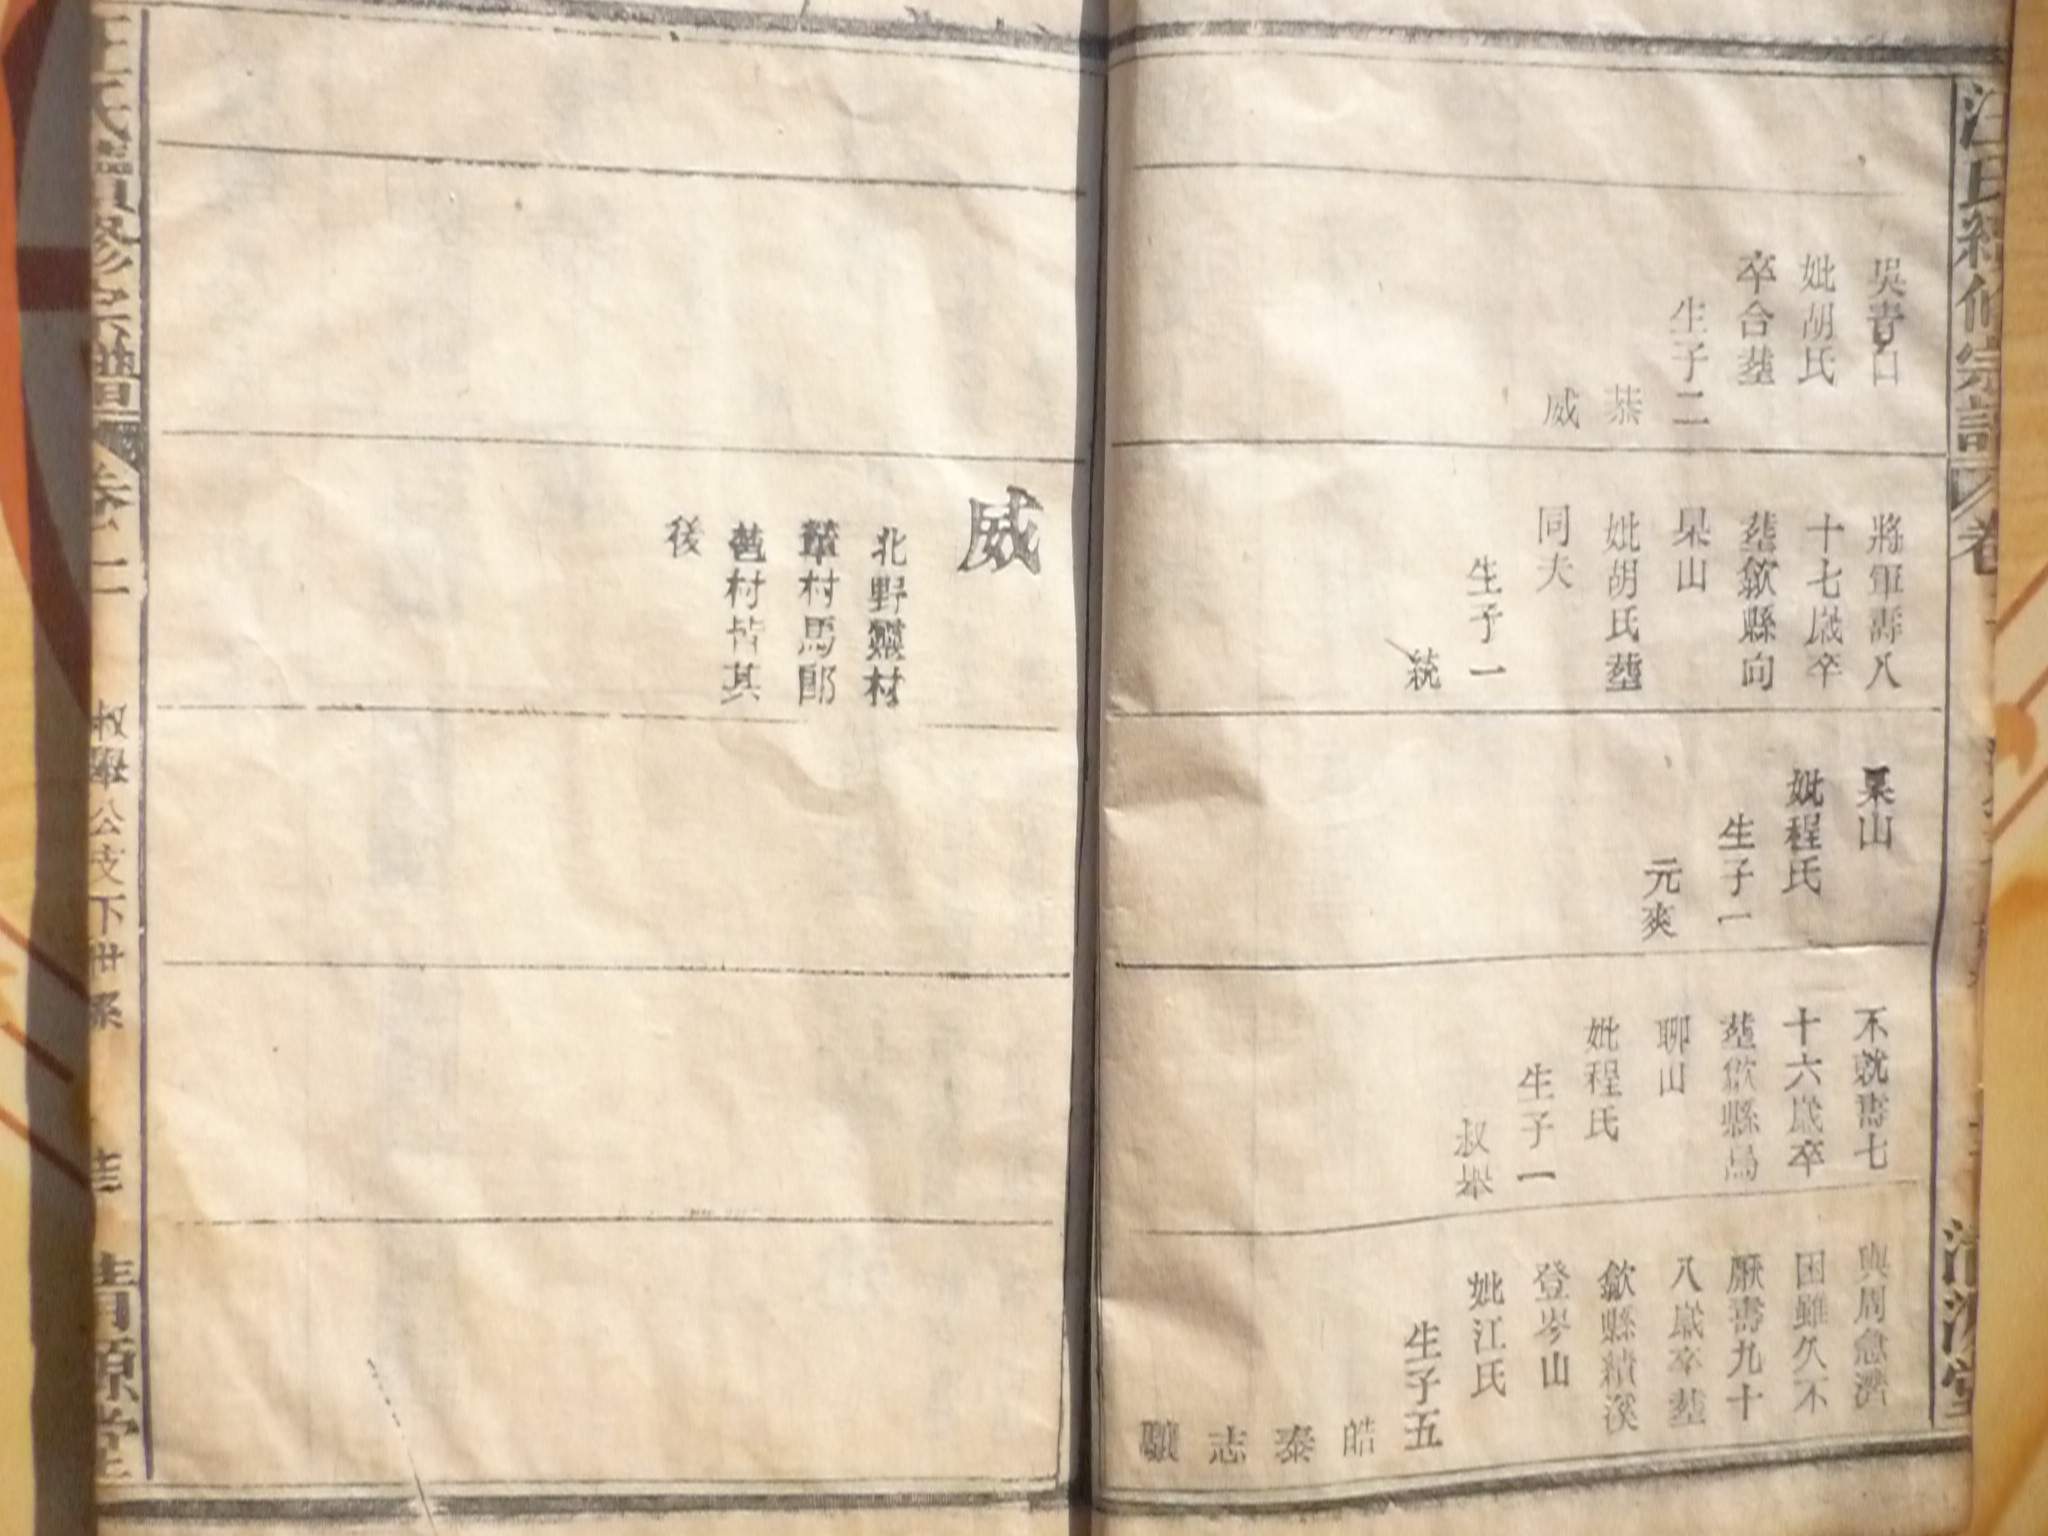 吳青口
妣胡氏
卒合塟
生子二
恭
威
將軍壽八
十七歲卒
塟歙縣向
杲山
妣胡氏塟
同夫
生子一
統
杲山
妣程氏
生子一
元爽
不就壽七
十六歲卒
塟歙縣烏
聊山
妣程氏
生子一
叔舉
與周急濟
困雖久不
厭壽九十
八歲卒塟
歙縣績溪
登岑山
妣江氏
生子五
皓
泰
志
威
北野
村
村馬郎
村皆其
後
氏續修宗譜
卷二
叔舉公支下世系
清源堂